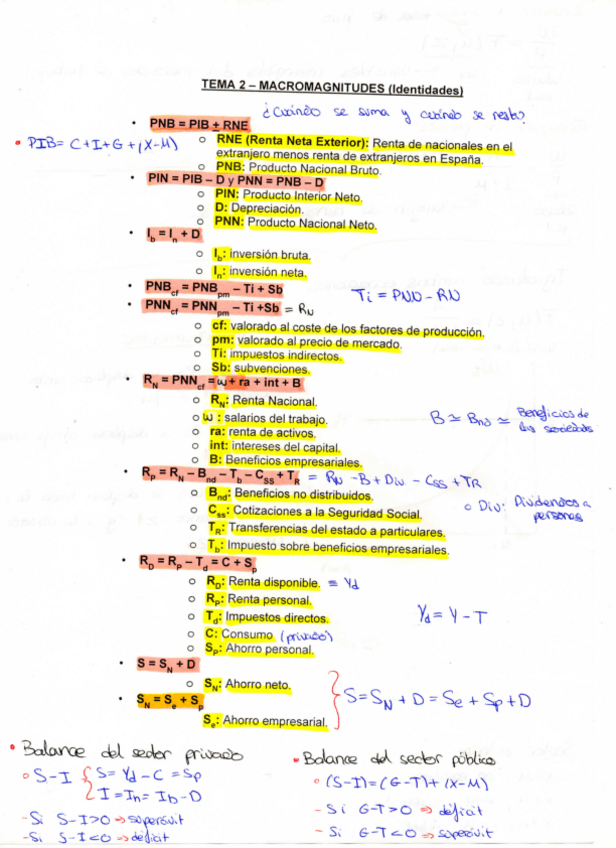 TEMA 2 – MACROMAGNITUDES (Identidades)
¿Cuándo se suma y cuándo se resta?
• PNB = PIB ± RNE
• PIB = C+I+G+(X-M)
○ RNE (Renta Neta Exterior): Renta de nacionales en el
extranjero menos renta de extranjeros en España.
○ PNB: Producto Nacional Bruto.
• PIN = PIB – D y PNN = PNB – D
○ PIN: Producto Interior Neto.
○ D: Depreciación.
○ PNN: Producto Nacional Neto.
• Ib = In + D
○ Ib: inversión bruta.
○ In: inversión neta.
• PNBcf = PNBpm – Ti + Sb
• PNNcf = PNNpm – Ti +Sb = RN
Ti = PNN - RN
○ cf: valorado al coste de los factores de producción.
○ pm: valorado al precio de mercado.
○ Ti: impuestos indirectos.
○ Sb: subvenciones.
• RN = PNNcf = w + ra + int + B
○ RN: Renta Nacional.
○ w : salarios del trabajo.
○ ra: renta de activos.
○ int: intereses del capital.
○ B: Beneficios empresariales.
B ≃ Bnd ≃ Beneficios de
las sociedades
• RP = RN – Bnd – Tb – CSS + TR = RN - B + Div - CSS + TR
○ Bnd: Beneficios no distribuidos.
○ CSS: Cotizaciones a la Seguridad Social.
○ TR: Transferencias del estado a particulares.
○ Tb: Impuesto sobre beneficios empresariales.
○ Div: Dividendos a
personas
• RD = RP – Td = C + Sp
○ RD: Renta disponible. = Yd
○ RP: Renta personal.
○ Td: Impuestos directos.
○ C: Consumo (privado)
○ SP: Ahorro personal.
Yd = Y - T
• S = SN + D
○ SN: Ahorro neto.
• SN = Se + Sp
Se: Ahorro empresarial.
S = SN + D = Se + Sp + D
• Balance del sector privado
○ S-I { S = Yd - C = Sp
I = In = Ib - D
- Si S-I>0 ⇒ superávit
- Si S-I<0 ⇒ déficit
• Balance del sector público
○ (S-I) = (G-T) + (X-M)
- Si G-T>0 ⇒ déficit
- Si G-T<0 ⇒ superávit